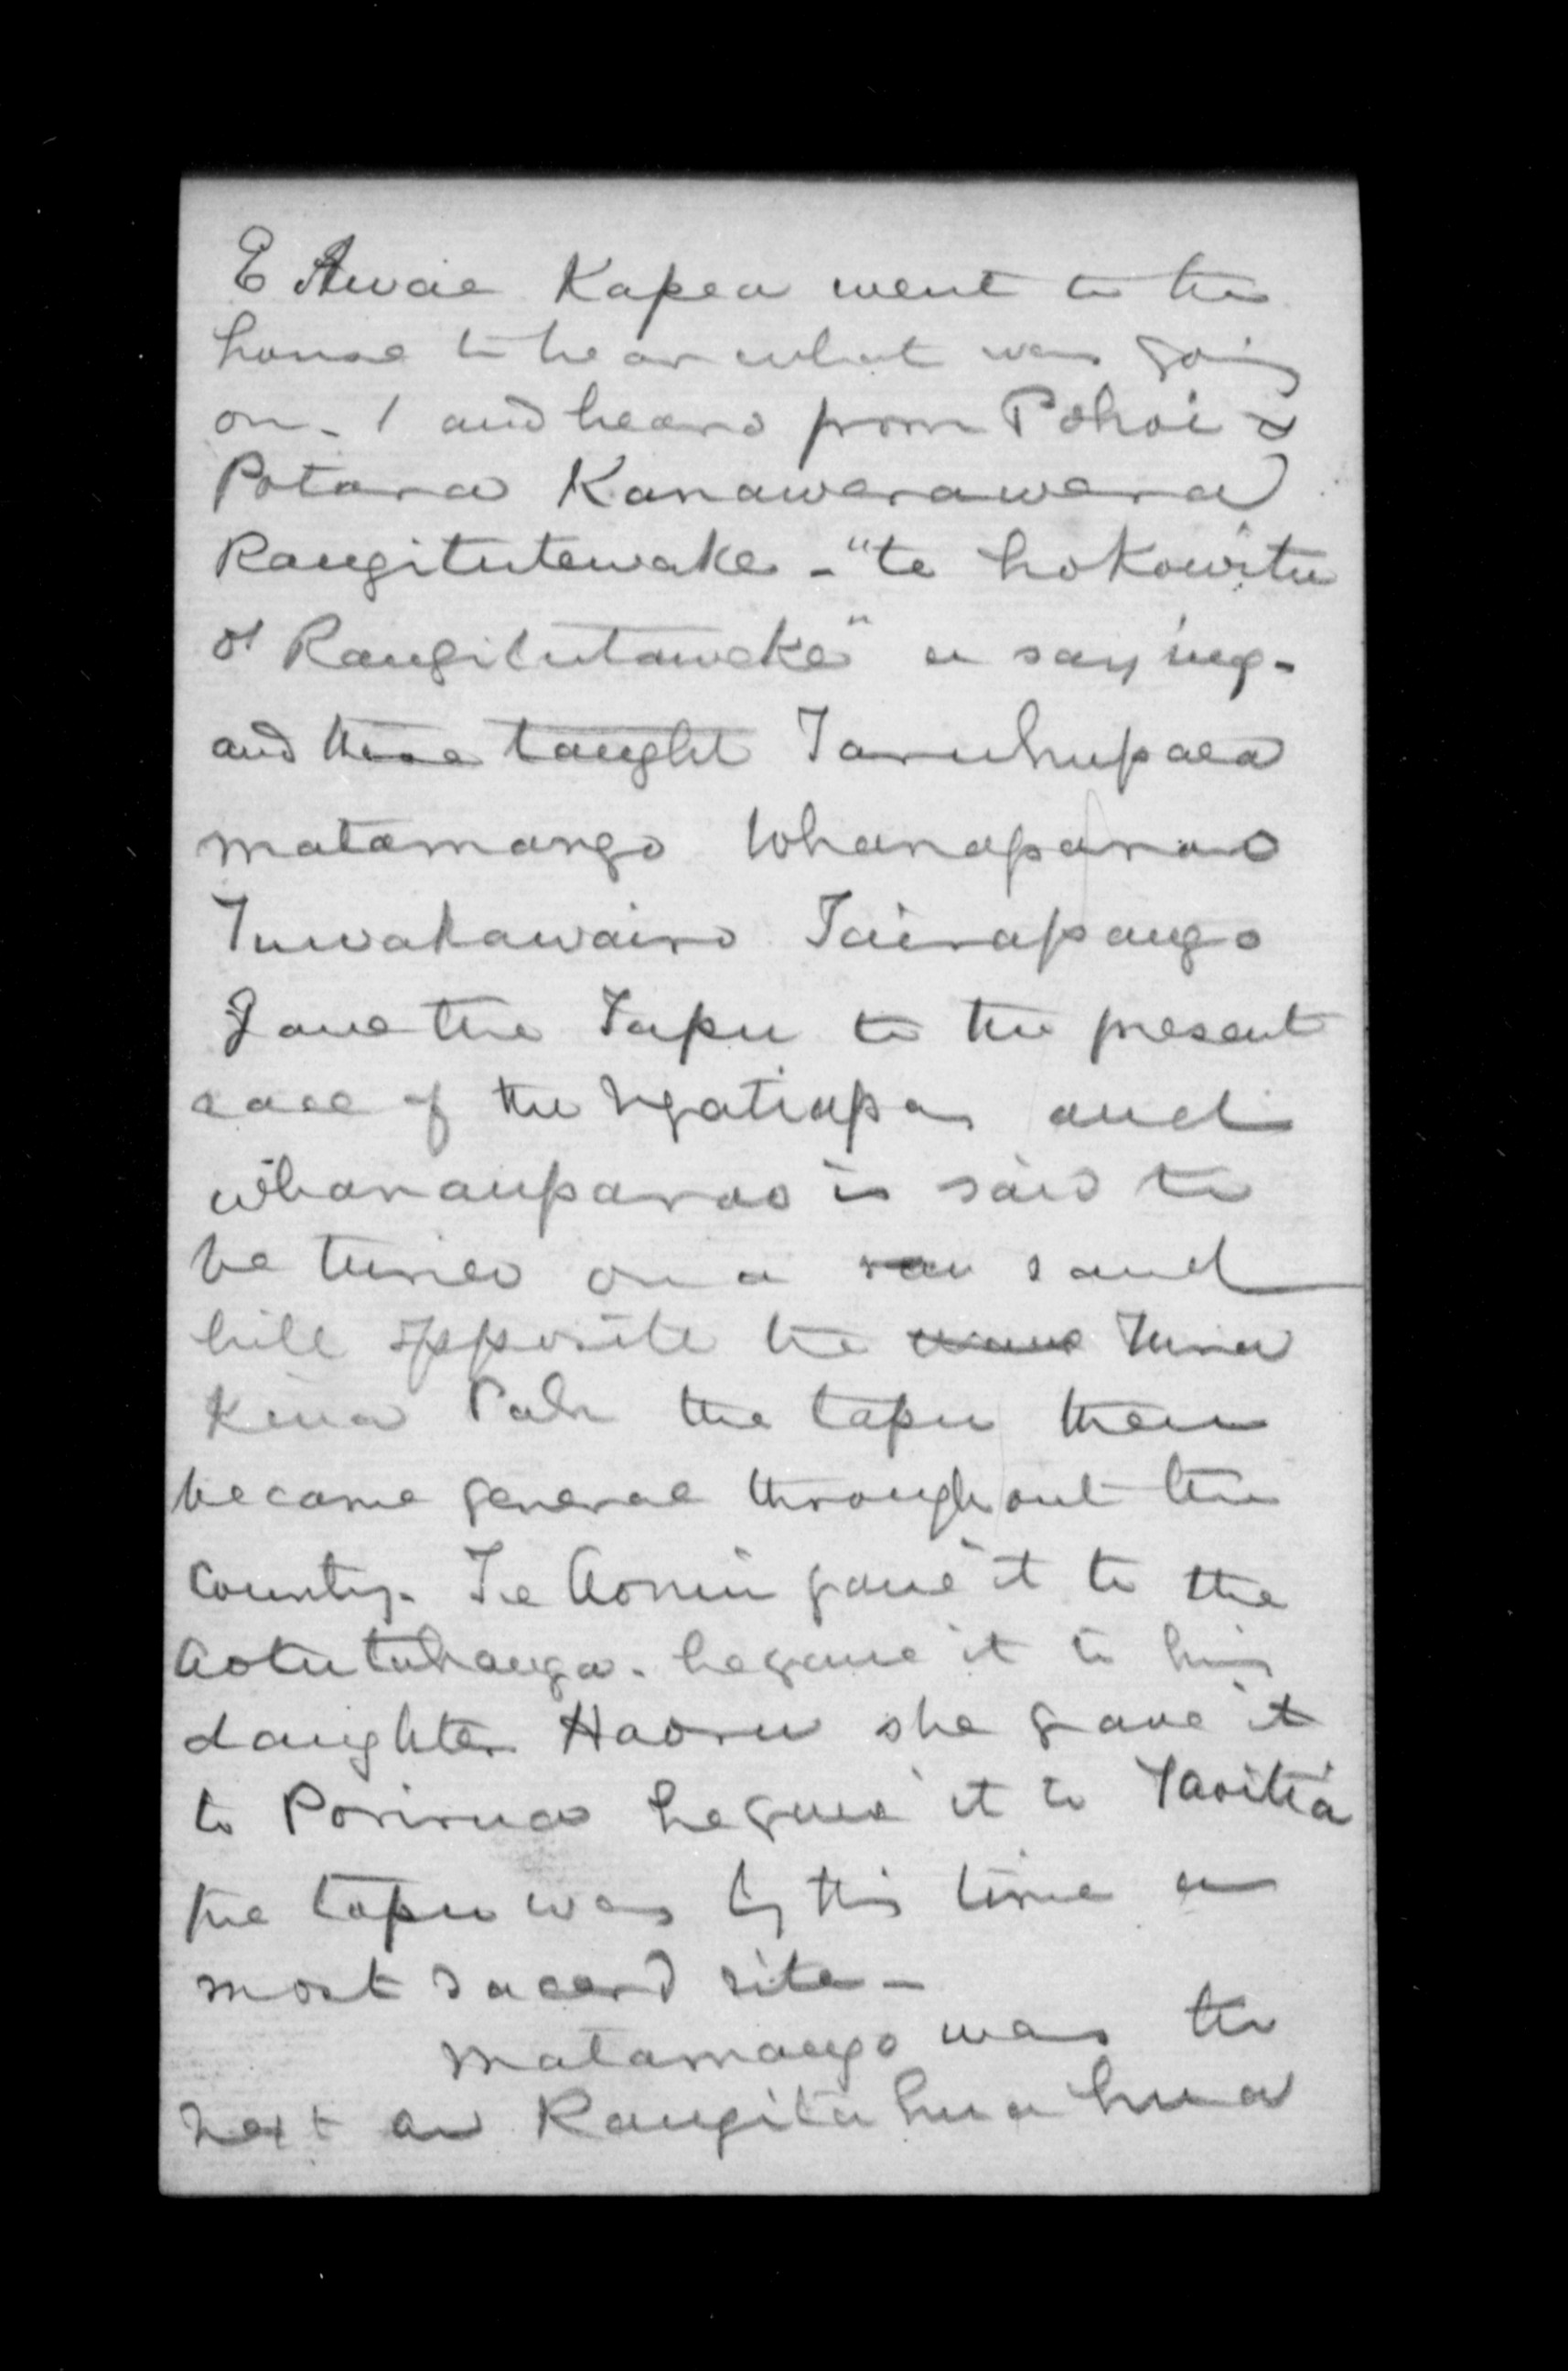 E Awaie Kapea went to the
house to hear what was going
on. / and heard from Pohoi &
Potara Kanawerawera
Rangitutewake - "te hokowitu
of Rangitutaweke" a saying -
and these taught Taruhupaea
matamango Whanaparao
Tuwakawairo Tairapango
Gave the Tapu to the present
race of the Ngatiapa and
whanauparao is said to
be turied on a sand
hill opposite the Tura
Kina Pah the tapu then
became general throughout the
County. Te Aonui gave it to the
Aotutahanga. he gave it to his
daughter Haoru she gave it
to Porirua he gave it to Taoitia
the tapu was by this time a
most sacerd rite -
Matamango was the
next as Rangitahuahua